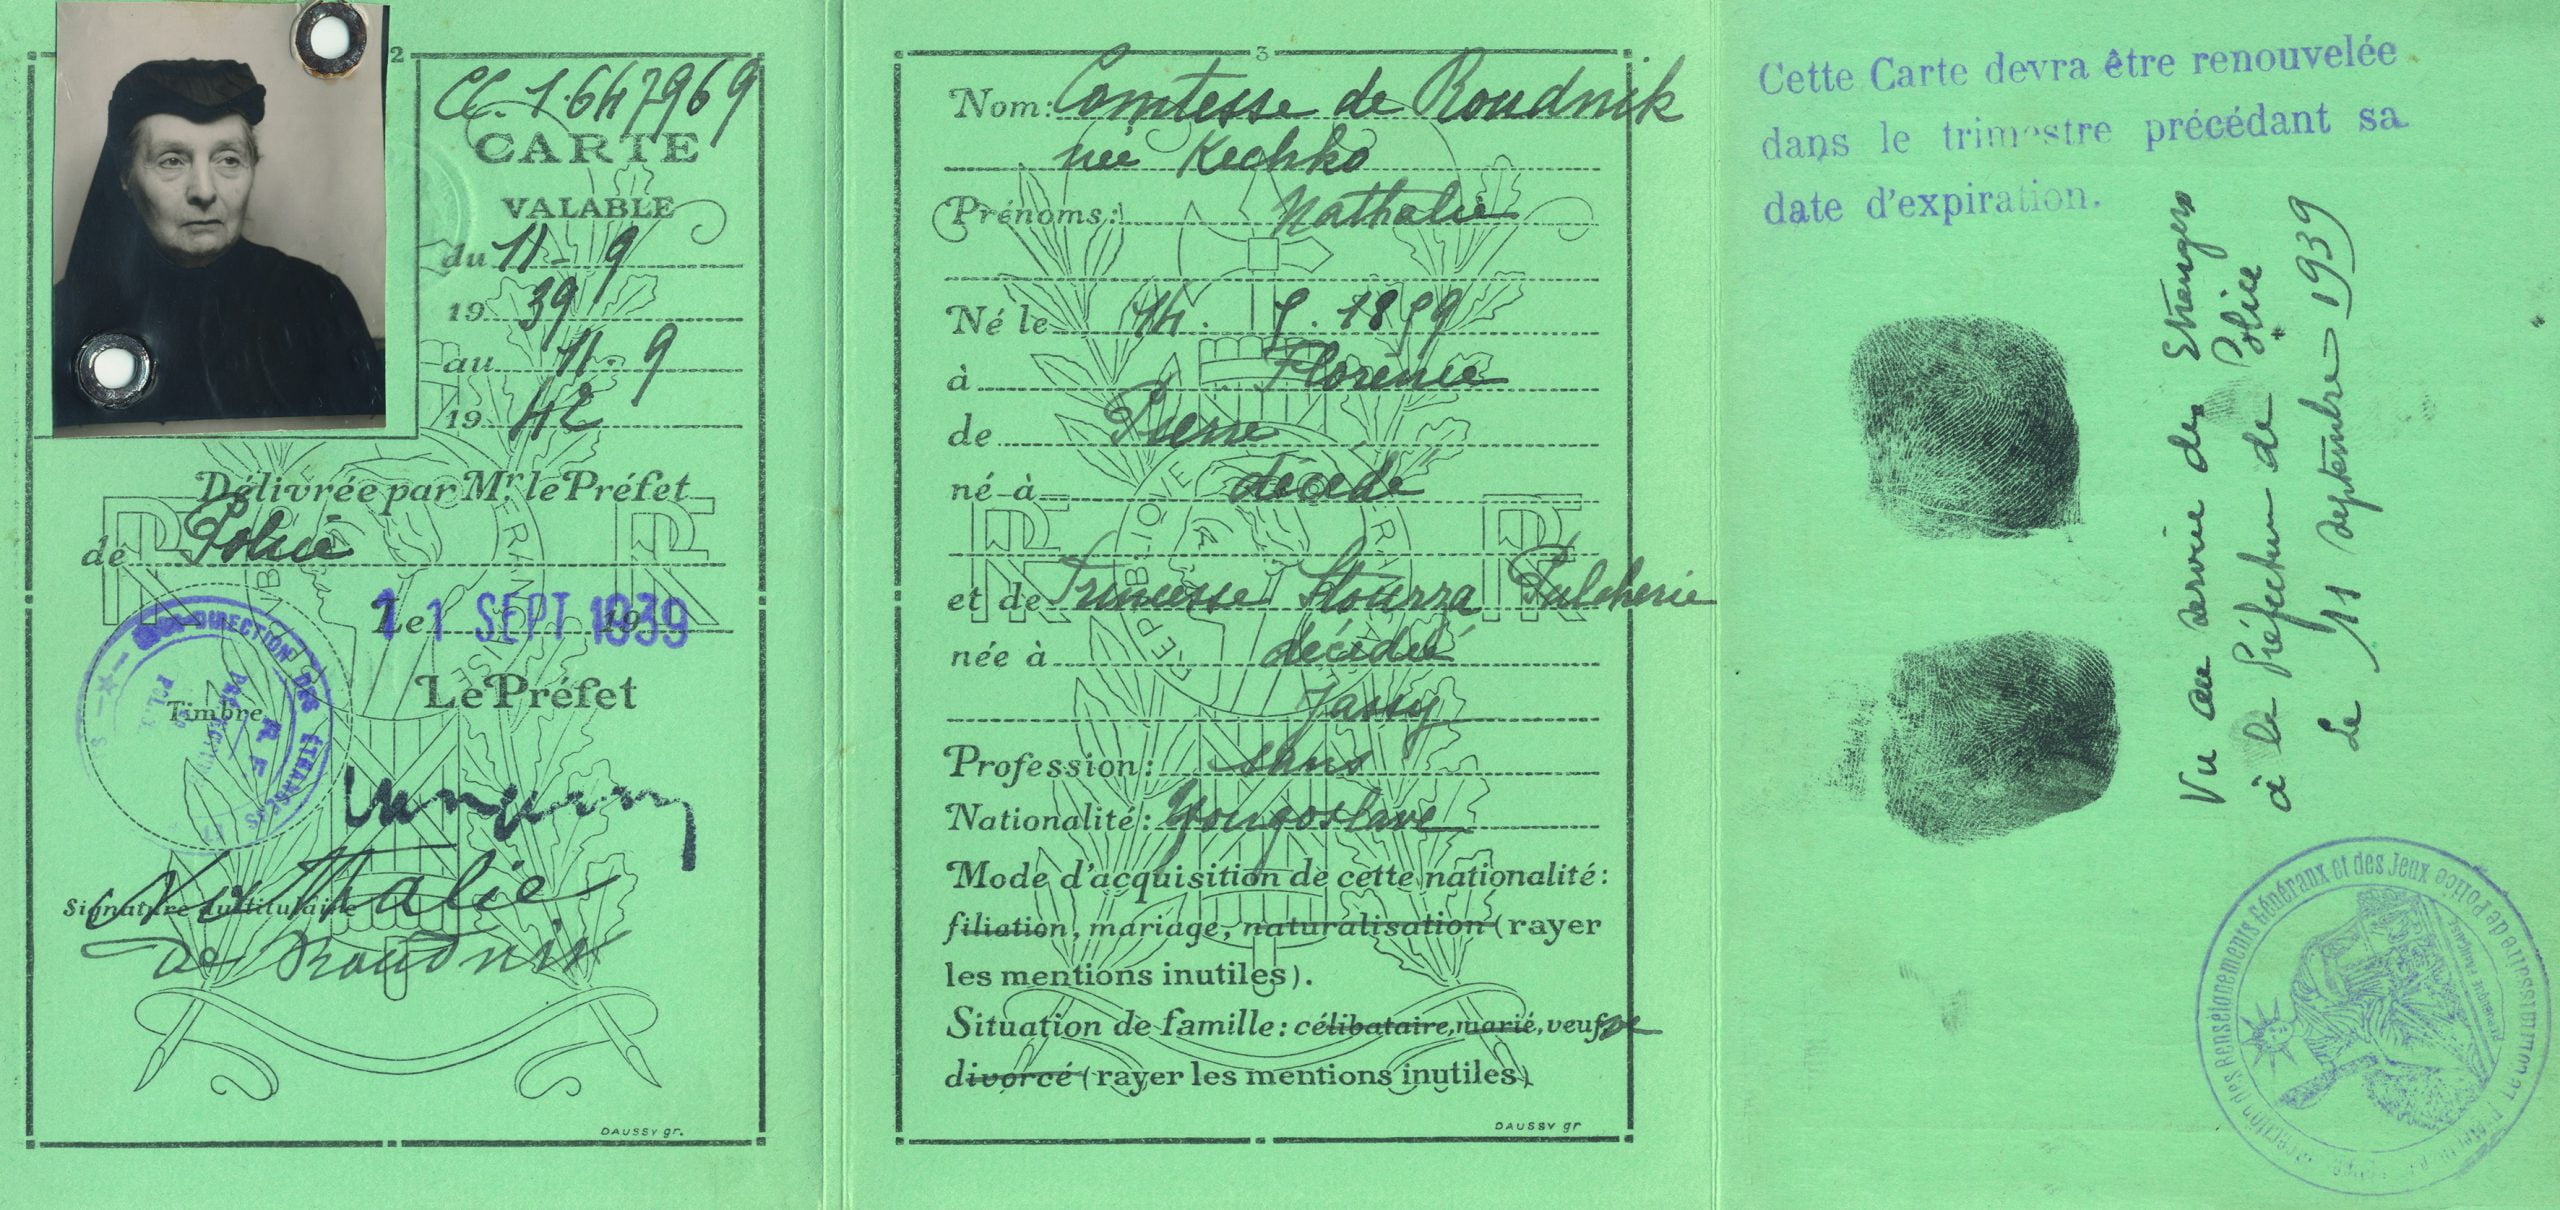 2
CC. 1.647969
CARTE
VALABLE
du 11 - 9
19 39
au 11 - 9
19 42
Délivrée par Mr. le Préfet
de Police
Le 11 SEPT 1939
Le Préfet
Timbre
DIRECTION DES ÉTRANGERS
R F
Signature du titulaire
Nathalie
de Roudnik
DAUSSY gr.
3
Nom: Comtesse de Roudnik
née Kechko
Prénoms: Nathalie
Né le 14. 5. 1859
à Florence
de Pierre
né à décédé
et de Princesse Stourza Pulcherie
née à décédée
Jassy
Profession: sans
Nationalité: Yougoslave
Mode d'acquisition de cette nationalité:
filiation, mariage, naturalisation (rayer
les mentions inutiles).
Situation de famille: célibataire, marié, veufve
divorcé (rayer les mentions inutiles)
DAUSSY gr
Cette Carte devra être renouvelée
dans le trimestre précédant sa
date d'expiration.
Vu au service des Etrangers
à la Préfecture de Police
Le 11 septembre 1939
Direction des Renseignements Généraux et des Jeux
Commissaire de Police